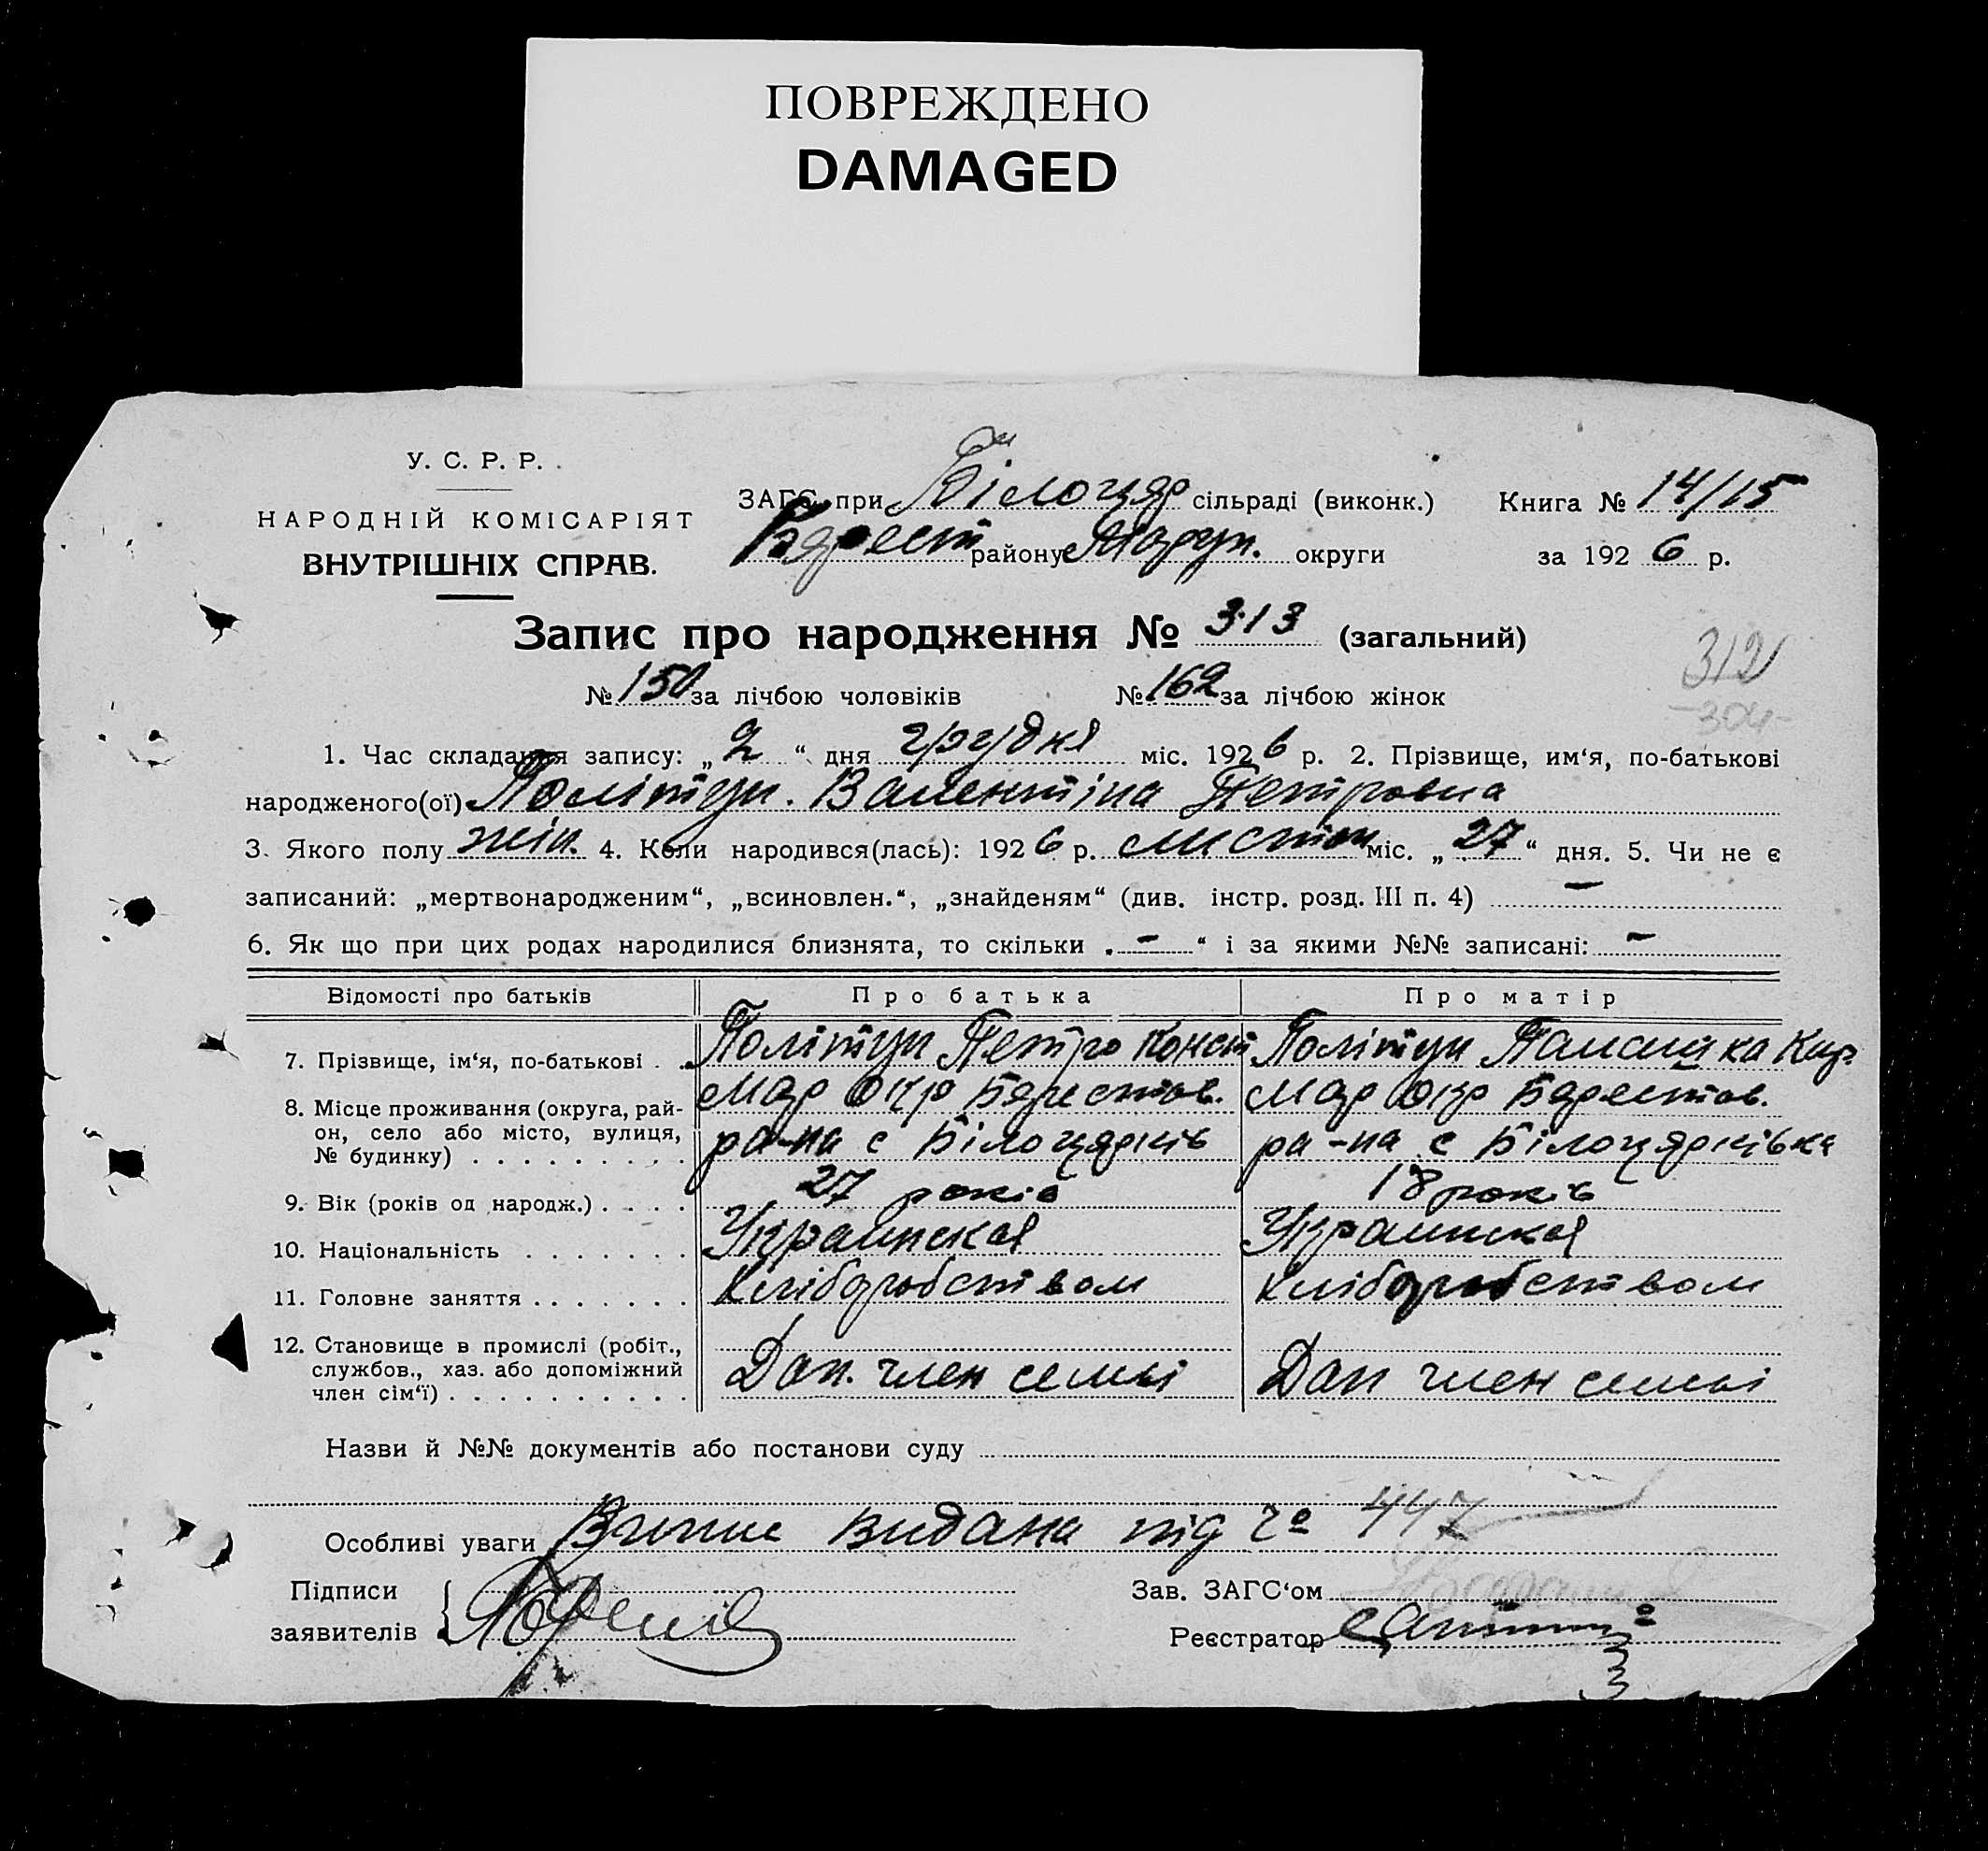 ПОВРЕЖДЕНО
DAMAGED
У. С. Р. Р.
НАРОДНІЙ КОМІСАРІЯТ
ВНУТРІШНІХ СПРАВ.
ЗАГС при Білоцер сільраді (виконк.)
Берест району Мариуп. округи
Книга № 14/15
за 1926 р.
Запис про народження № 313 (загальний)
№ 150 за лічбою чоловіків № 162 за лічбою жінок
312
304
1. Час складання запису: „2“ дня грудня міс. 1926 р. 2. Прізвище, им‘я, по-батькові
народженого(ої) Валентіна Петровна
3. Якого полу жін. 4. Коли народився(лась): 1926 р. листоп міс. „27“ дня. 5. Чи не є
записаний: „мертвонародженим“, „всиновлен.“, „знайденям“ (див. інстр. розд. III п. 4) —
6. Як що при цих родах народилися близнята, то скільки „—“ і за якими №№ записані: —
Відомості про батьків Про батька Про матір
7. Прізвище, ім‘я, по-батькові Петро Конст
8. Місце проживання (округа, рай-
он, село або місто, вулиця,
№ будинку)
Мар окр Берестов.
ра-на с Білоцерків
Мар окр Берестов.
ра-на с Білоцерківка
9. Вік (років од народж.) 27 років 18 років
10. Національність Украинская Украинская
11. Головне заняття Хліборобством Хліборобством
12. Становище в промислі (робіт.,
службов., хаз. або допоміжний
член сім‘ї)
Доп. член семьі Доп член семьі
Назви й №№ документів або постанови суду
Особливі уваги видана під 447
Підписи
заявителів
Зав. ЗАГС‘ом
Реєстратор